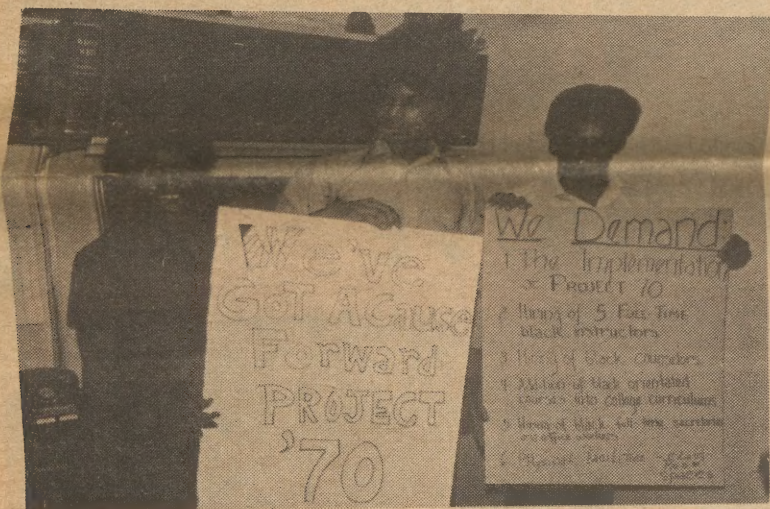 We've
GOT A Cause
Forward
PROJECT
'70
We Demand:
1 The Implementation
of PROJECT 70
2 Hiring of 5 Full Time
black instructors
3 Hiring of Black Counselors
4 Addition of black orientated
courses into college curriculum
5 Hiring of black full time secretaries
office workers
6 Physical facilities